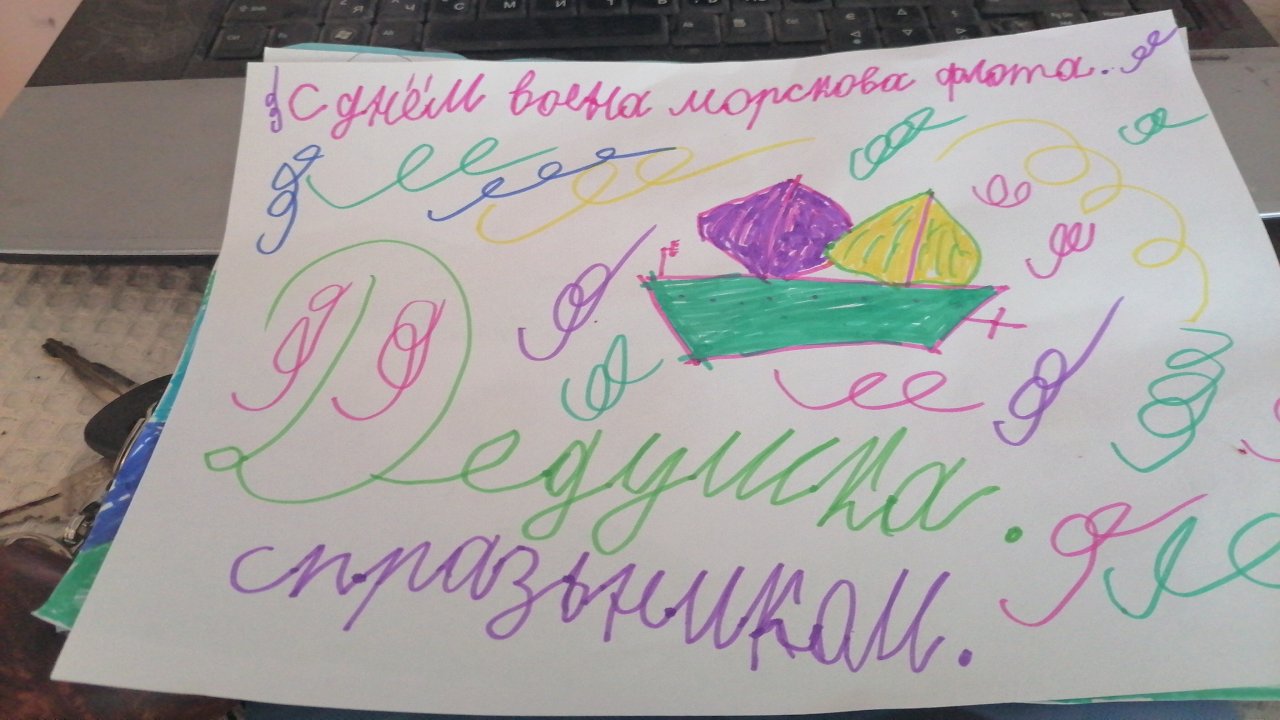 С днём воена морскова флота.
Дедушка.
спразьником.